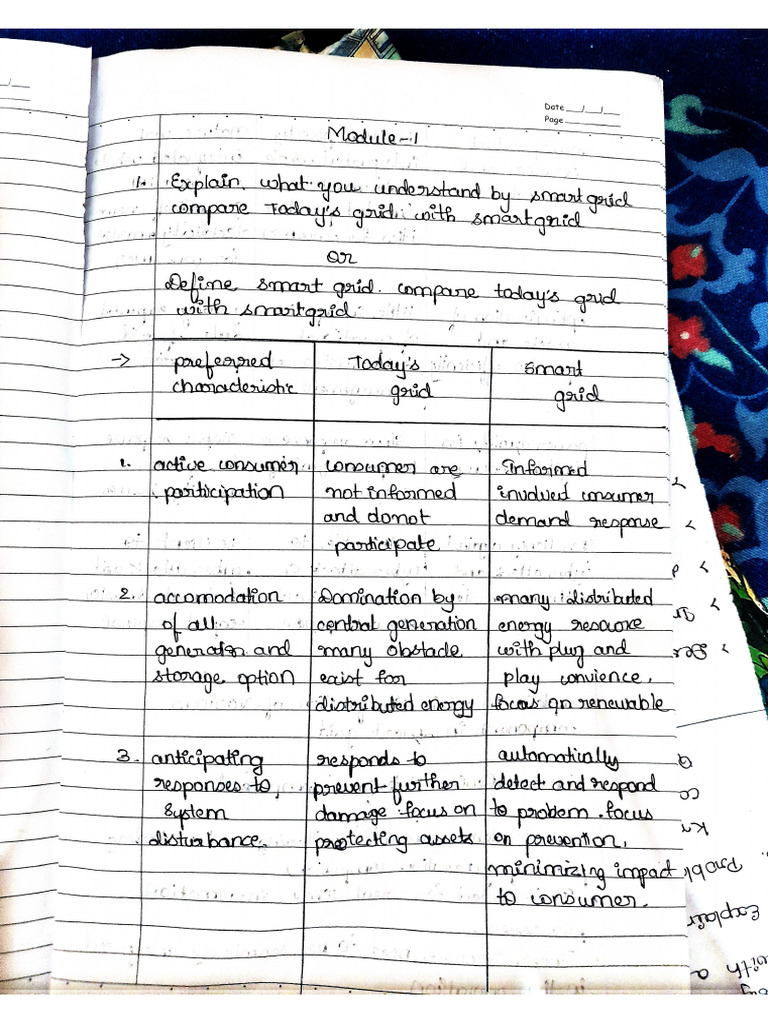 Date __/__/__
Page ________
Module-1
1. Explain what you understand by smart grid
compare Today's grid with smartgrid
OR
Define smart grid. compare today's grid
with smartgrid
→ preferred characteristic | Today's grid | Smart grid
1. active consumer | consumer are | Informed
participation | not informed | involved consumer
and donot | demand response
participate
2. accomodation | Domination by | many distributed
of all | central generation | energy resource
generator and | many obstacle | with plug and
storage option | exist for | play convience,
distributed energy | focus on renewable
3. anticipating | responds to | automatically
responses to | prevent further | detect and respond
system | damage focus on | to problem. focus
disturbance. | protecting assets | on prevention,
minimizing impact
to consumer.
Probl
Explain
with a